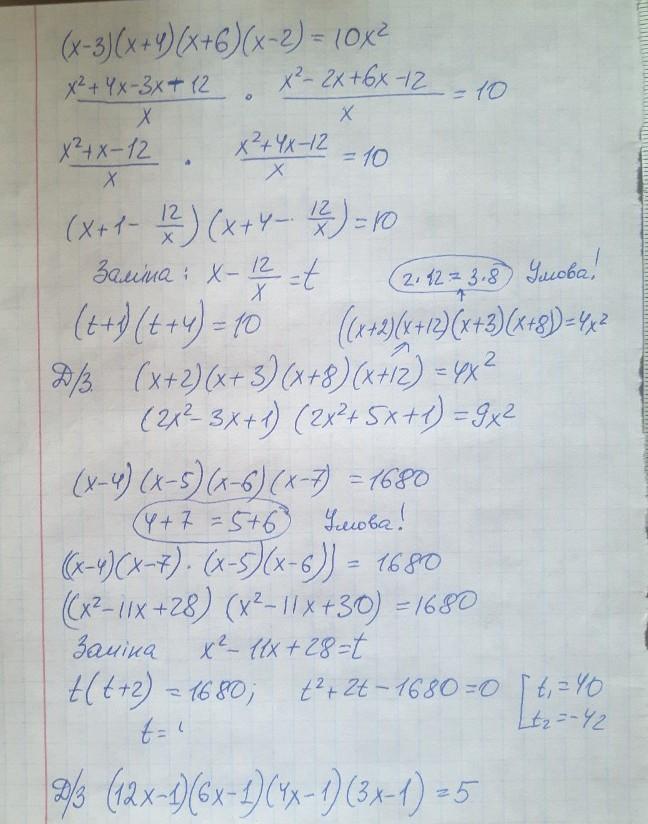 (x-3)(x+4)(x+6)(x-2) = 10x²
(x²+4x-3x+12)/x · (x²-2x+6x-12)/x = 10
(x²+x-12)/x · (x²+4x-12)/x = 10
(x+1- 12/x)(x+4- 12/x) = 10
Заміна: x - 12/x = t (2·12 = 3·8) Умова!
(t+1)(t+4) = 10 ((x+2)(x+12)(x+3)(x+8)) = 4x²
Д/З. (x+2)(x+3)(x+8)(x+12) = 4x²
(2x²-3x+1) (2x²+5x+1) = 9x²
(x-4)(x-5)(x-6)(x-7) = 1680
(4+7 = 5+6) Умова!
((x-4)(x-7)·(x-5)(x-6)) = 1680
((x²-11x+28) (x²-11x+30) = 1680
Заміна x²-11x+28=t
t(t+2) = 1680; t²+2t-1680=0 [t₁=40
t₂=-42
t =
Д/З (12x-1)(6x-1)(4x-1)(3x-1) = 5